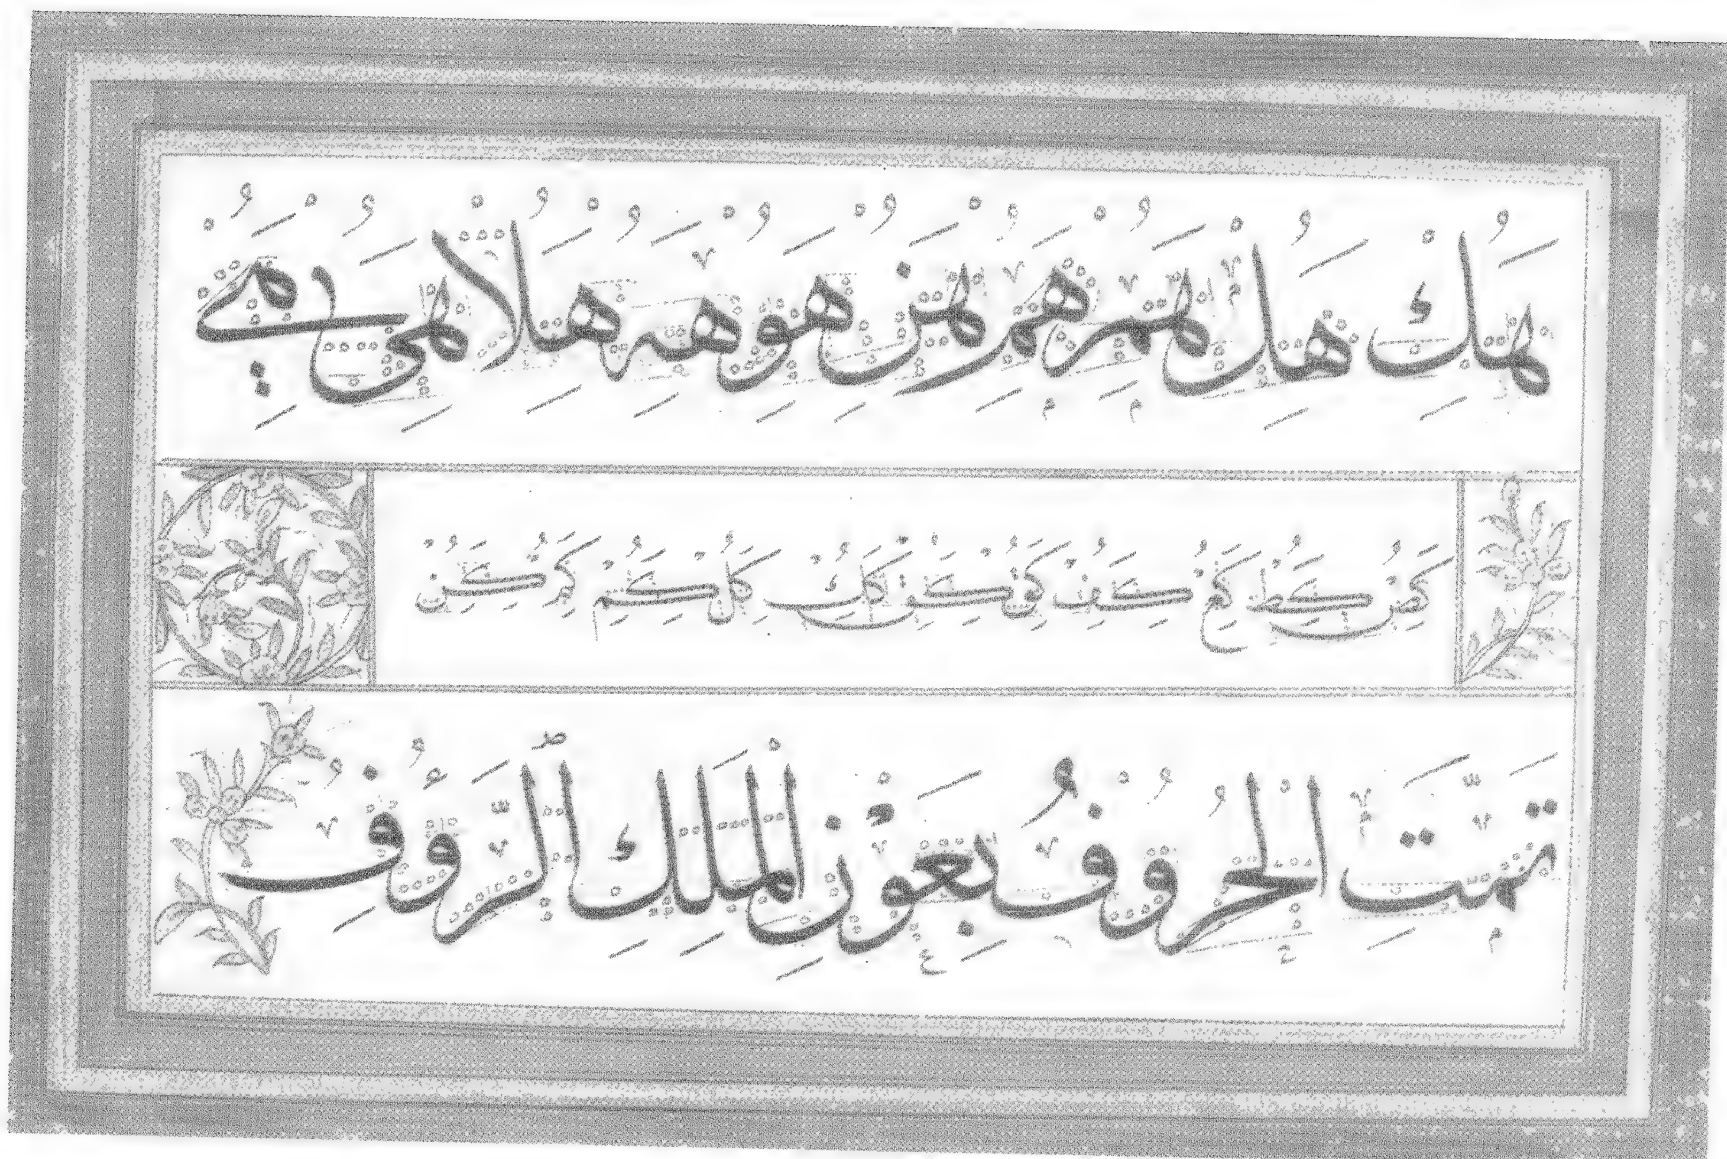 هك هل هم هم هن هو هه هلا هى ي
كص كط كع كف كق كك كل كم كم كن
تمّتِ الحُرُوفُ بِعَوْنِ الْمَلِكِ الرَّؤُفِ